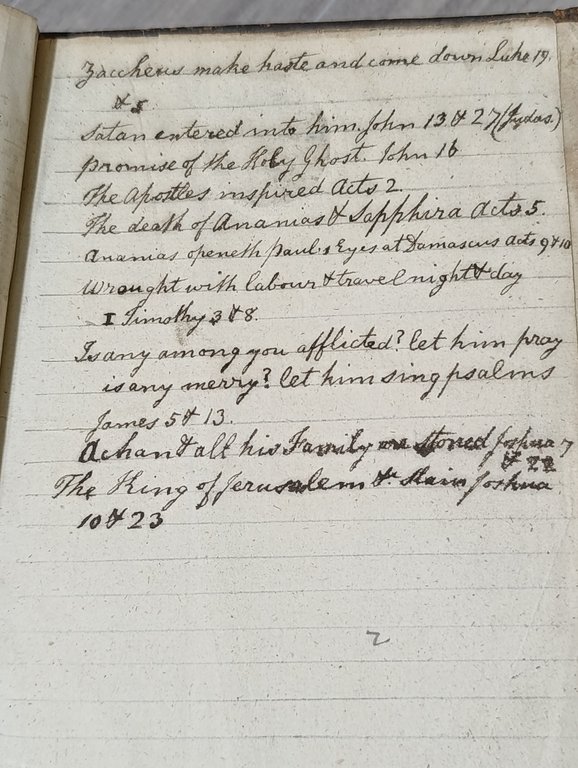 Zaccheus make haste and come down Luke 19.
& 5
Satan entered into him. John 13 & 27 (Judas.)
Promise of the Holy Ghost. John 16
The Apostles inspired Acts 2.
The death of Ananias & Sapphira Acts 5.
Ananias openeth Paul's Eyes at Damascus Acts 9 & 10
Wrought with labour & travel night & day
I Timothy 3 & 8.
Is any among you afflicted? let him pray
is any merry? let him sing psalms
James 5 & 13.
Achan & all his Family are stoned Joshua 7
& 22
The King of Jerusalem &c slain Joshua
10 & 23
2